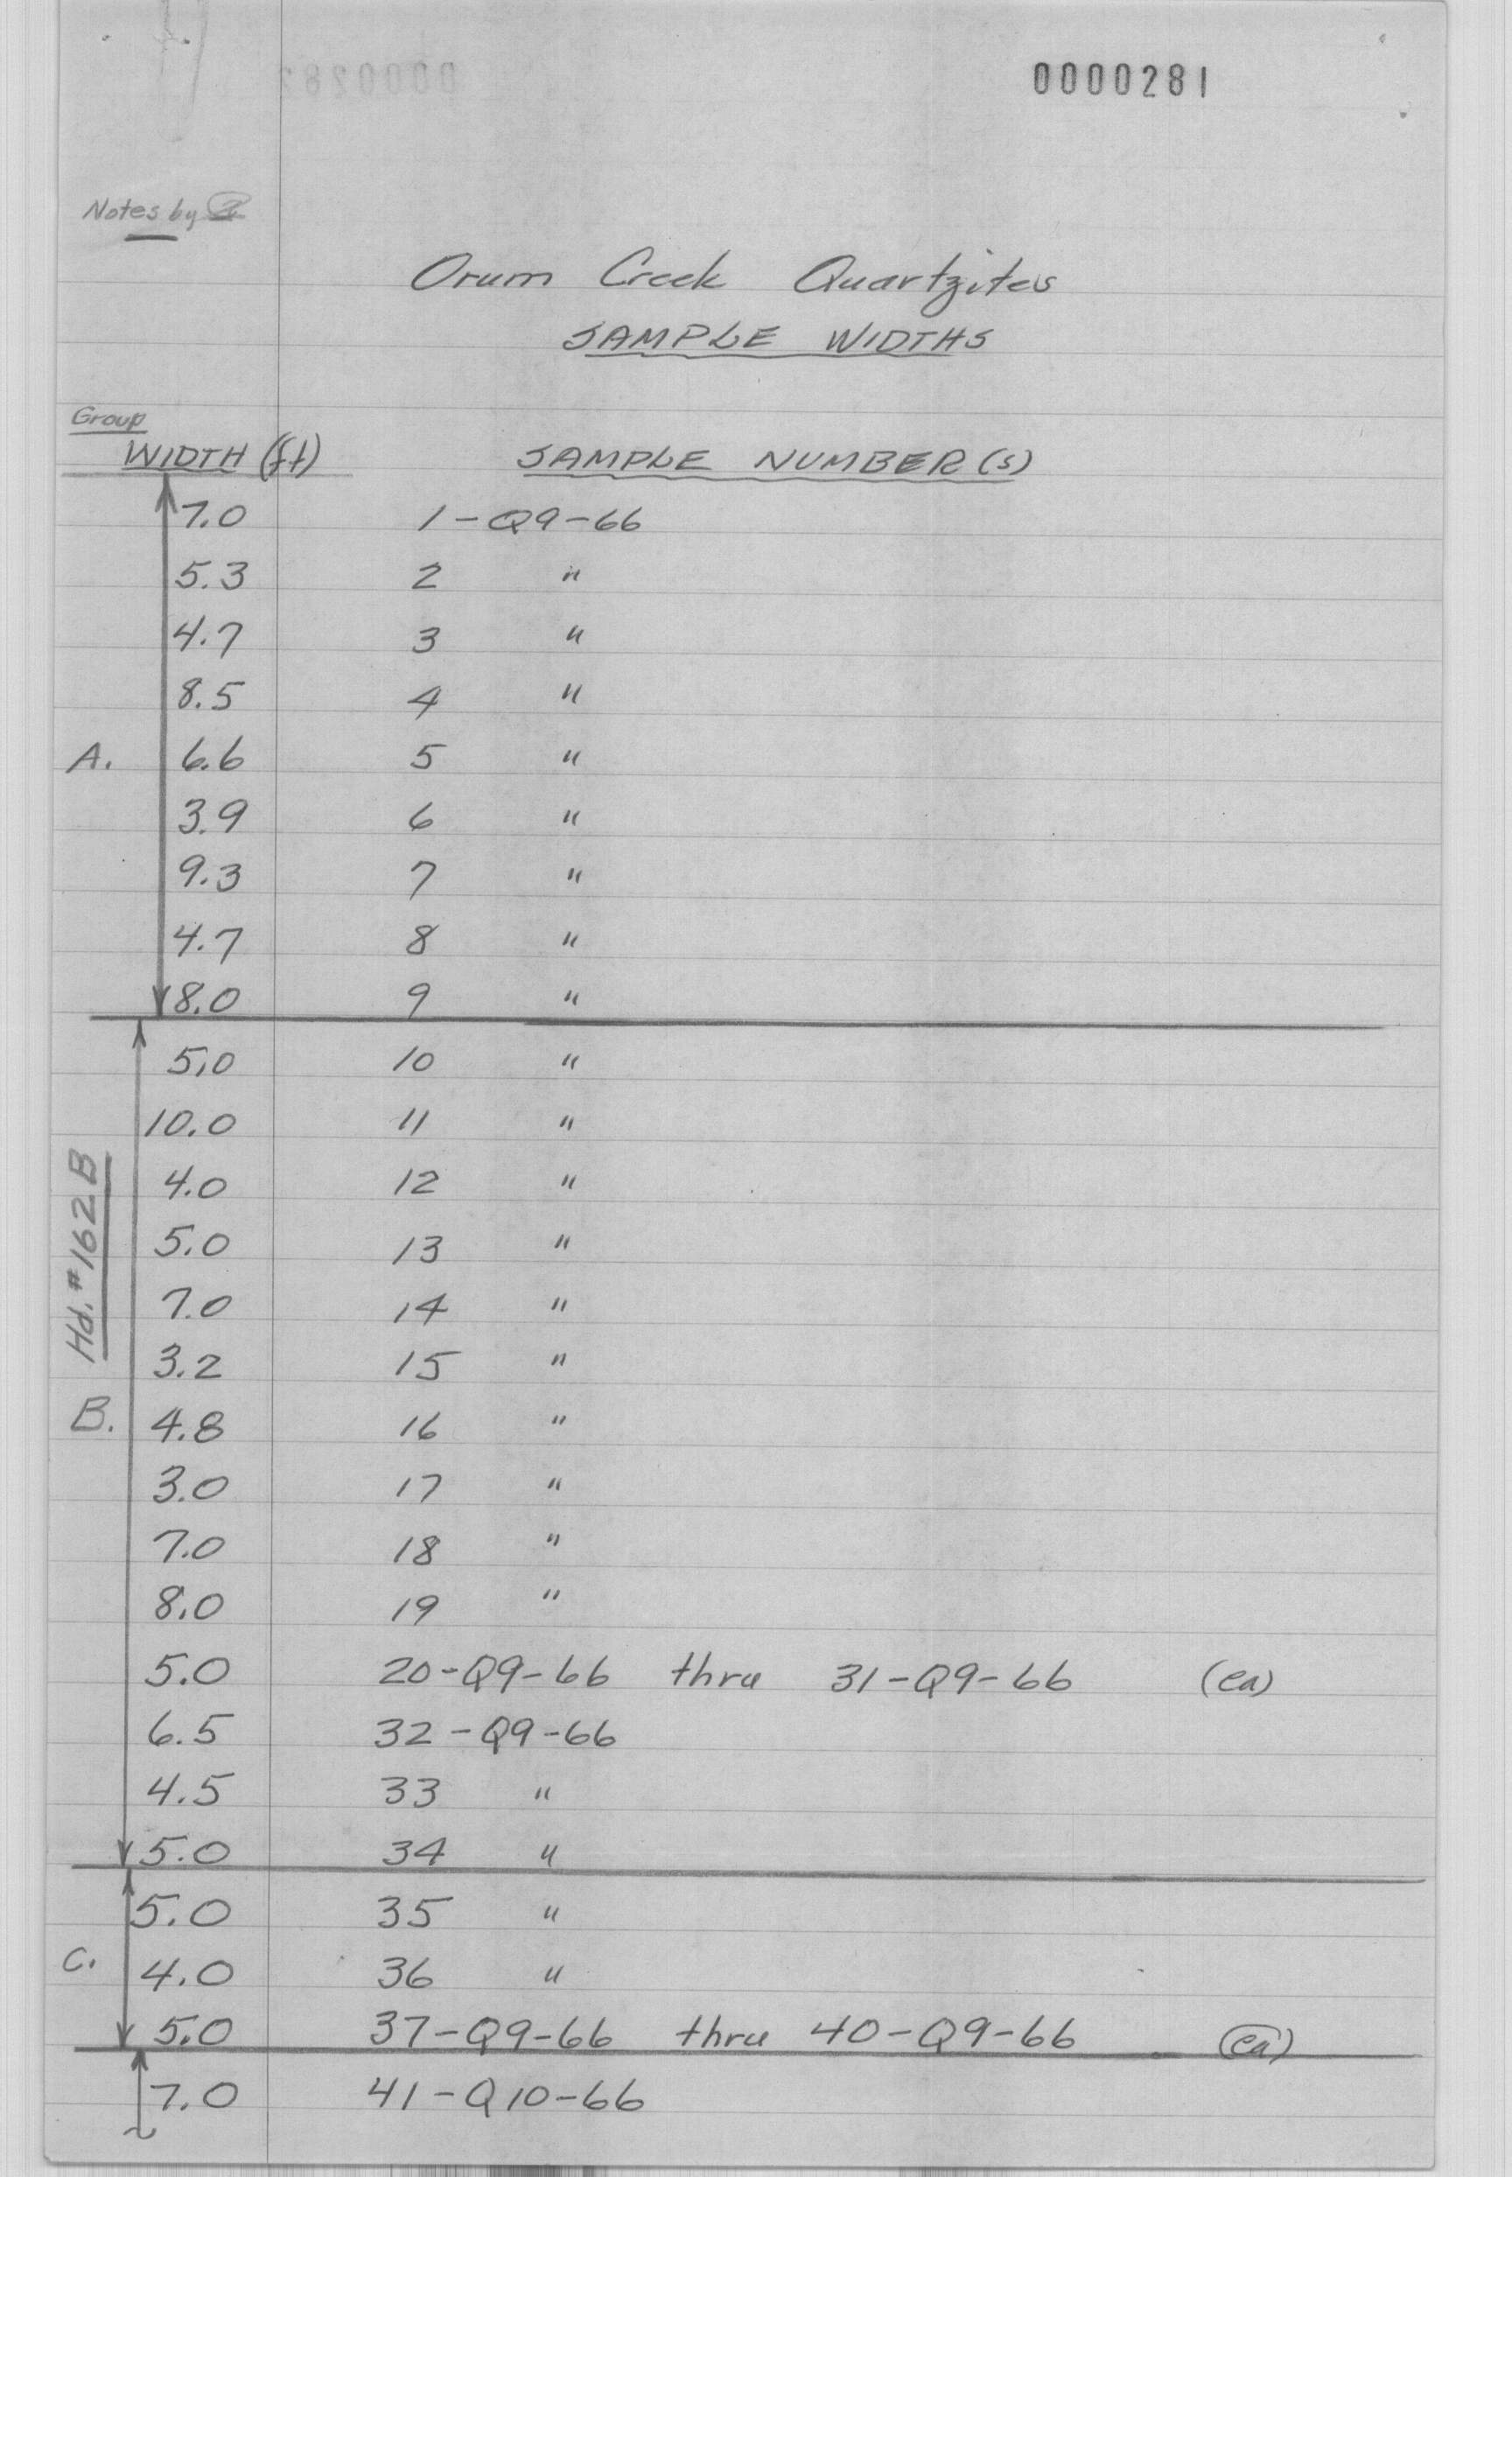 0000281
Notes by
Orum Creek Quartzites
SAMPLE WIDTHS
Group
WIDTH (ft) SAMPLE NUMBER(s)
7.0 1-Q9-66
5.3 2 "
4.7 3 "
8.5 4 "
A. 6.6 5 "
3.9 6 "
9.3 7 "
4.7 8 "
8.0 9 "
5.0 10 "
10.0 11 "
4.0 12 "
5.0 13 "
Hd. #162B
7.0 14 "
3.2 15 "
B. 4.8 16 "
3.0 17 "
7.0 18 "
8.0 19 "
5.0 20-Q9-66 thru 31-Q9-66 (ea)
6.5 32-Q9-66
4.5 33 "
5.0 34 "
5.0 35 "
C. 4.0 36 "
5.0 37-Q9-66 thru 40-Q9-66 (ea)
7.0 41-Q10-66